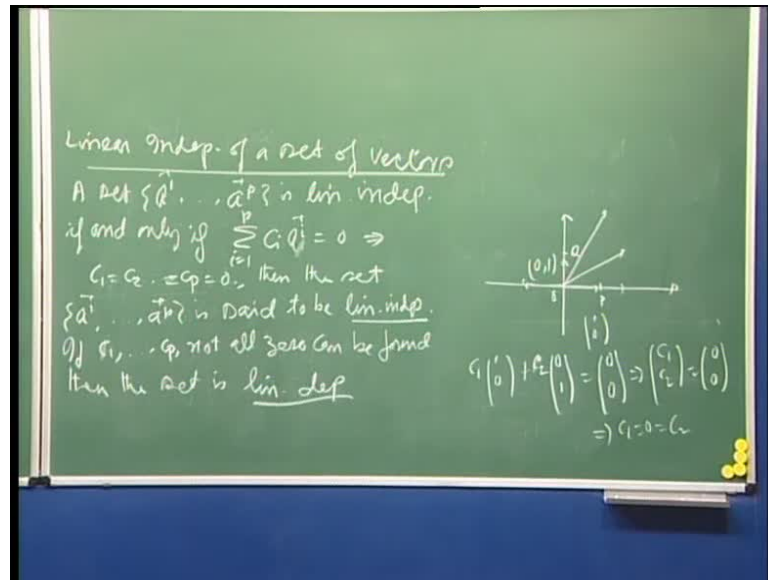 Linear Indep. of a set of vectors
A set {a⃗¹, . . , a⃗ᵖ} is lin. indep.
if and only if \sum_{i=1}^{p} C_i a⃗^i = 0 ⇒
C₁ = C₂ . = Cp = 0. , then the set
{a⃗¹, . . , a⃗ᵖ} is said to be lin. indp.
If C₁, . . Cp, not all zero can be found
then the set is lin. dep
Q
(0,1)
P
(1 0)
C₁ (1 0) + C₂ (0 1) = (0 0) ⇒ (C₁ C₂) = (0 0)
⇒ C₁ = 0 = C₂